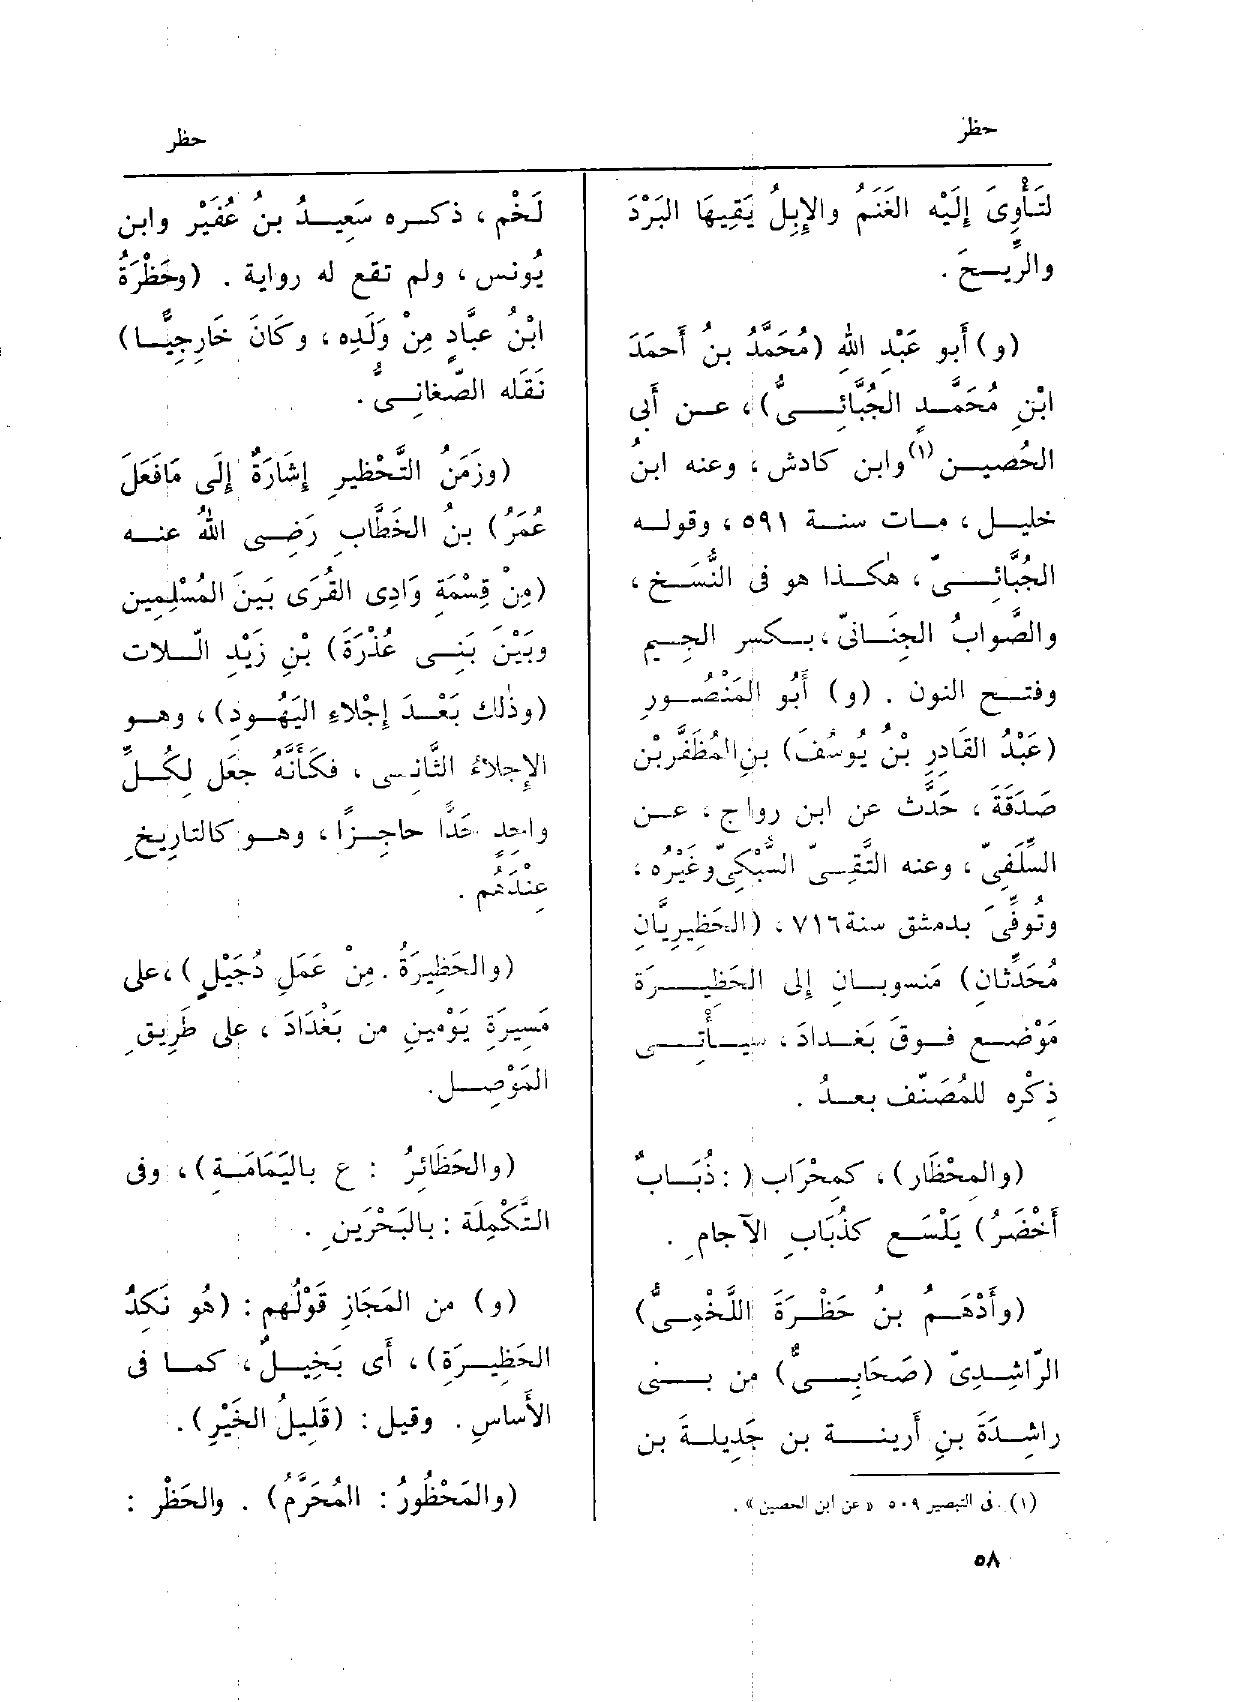 حظر
حظر
لتَأْوِىَ إِلَيْه الغَنَمُ والإِبِلُ يَقِيهَا البَرْدَ
والرِّيحَ .
(و) أَبو عَبْدِ اللهِ (مُحَمَّدُ بنُ أَحمَدَ
ابْنِ مُحَمَّدٍ الجُبَّائِىُّ) ، عن أَبى
الحُصين(١) وابن كادش ، وعنه ابن
خليل ، مات سنة ٥٩١ ، وقوله
الجُبَّائىّ ، هكذا هو فى النُّسَخ ،
والصَّوابُ الجِنَانىّ ، بكسر الجِيم
وفتح النون . (و) أَبُو المَنْصُورِ
(عَبْدُ القَادِرِ بْنُ يُوسُفَ) بنِ المُظَفَّرِ بْن
صَدَقَةَ ، حَدَّث عن ابن رواج ، عن
السِّلَفِىّ ، وعنه التَّقِىّ السُّبْكِىّ وغَيْرُه ،
وتُوفِّىَ بدمشق سنة ٧١٦ ، (الحَظِيرِيَّانِ
مُحَدِّثَان) مَنسوبان إلى الحَظِيرَة
مَوْضع فوقَ بَغدادَ ، سيأْتِى
ذِكْره للمُصَنّف بعدُ .
(والمِحْظَار) ، كمِحْرَاب ( : ذُبَابٌ
أَخْضَرُ) يَلْسَع كذُبَابِ الآجام .
(وأَدْهَمُ بنُ حَظْرَةَ اللَّخْمِىُّ)
الرّاشِدِىّ (صَحَابِىٌّ) من بنى
راشِدَةَ بنِ أُرينة بن جَدِيلةَ بن
(١) فى التبصير ٥٠٩ « عن ابن الحصين » .
لَخْم ، ذكره سَعِيدُ بنُ عُفَيْر وابن
يُونس ، ولم تقع له رواية . (وحَظْرَةُ
ابْنُ عبَّادٍ مِنْ وَلَدِه ، وكَانَ خَارِجِيًّا)
نَقَله الصّغانِىُّ .
(وزَمَنُ التَّحْظِيرِ إِشَارَةٌ إِلَى مَافَعَلَ
عُمَرُ) بنُ الخَطَّابِ رَضِى اللهُ عنه
(مِنْ قِسْمَةِ وَادِى القُرَى بَينَ المُسْلِمِين
وبَيْنَ بَنِى عُذْرَةَ) بْنِ زَيْدِ الّلات
(وذٰلك بَعْدَ إِجْلاءِ اليَهُودِ) ، وهو
الإِجلاءُ الثَّانِى ، فكَأَنَّهُ جعَل لِكُلِّ
واحِدٍ حَدًّا حاجِزًا ، وهو كالتارِيخِ
عِنْدَهُم .
(والحَظِيرَةُ . مِنْ عَمَلِ دُجَيْلٍ) ، على
مَسِيرَةِ يَوْمينِ من بَغْدَادَ ، على طَرِيقِ
المَوْصِل .
(والحَظَائِرُ : ع باليَمَامَةِ) ، وفى
التَّكْمِلَة : بالبَحْرَينِ .
(و) من المَجَازِ قَوْلُهم : (هُو نَكِدُ
الحَظِيرَة) ، أَى بَخِيلٌ ، كما فى
الأَساسِ . وقيل : (قَلِيلُ الخَيْرِ) .
(والمَحْظُورُ : المُحَرَّمُ) . والحَظْر :
٥٨